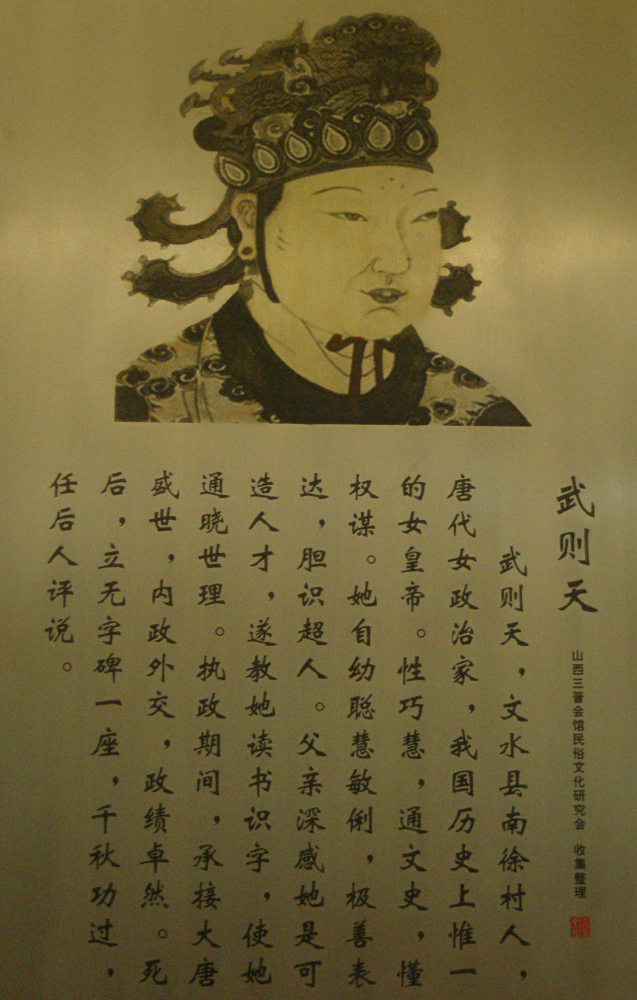 武则天
山西三晋会馆民俗文化研究会 收集整理
武则天，文水县南徐村人，
唐代女政治家，我国历史上惟一
的女皇帝。性巧慧，通文史，懂
权谋。她自幼聪慧敏俐，极善表
达，胆识超人。父亲深感她是可
造人才，遂教她读书识字，使她
通晓世理。执政期间，承接大唐
盛世，内政外交，政绩卓然。死
后，立无字碑一座，千秋功过，
任后人评说。